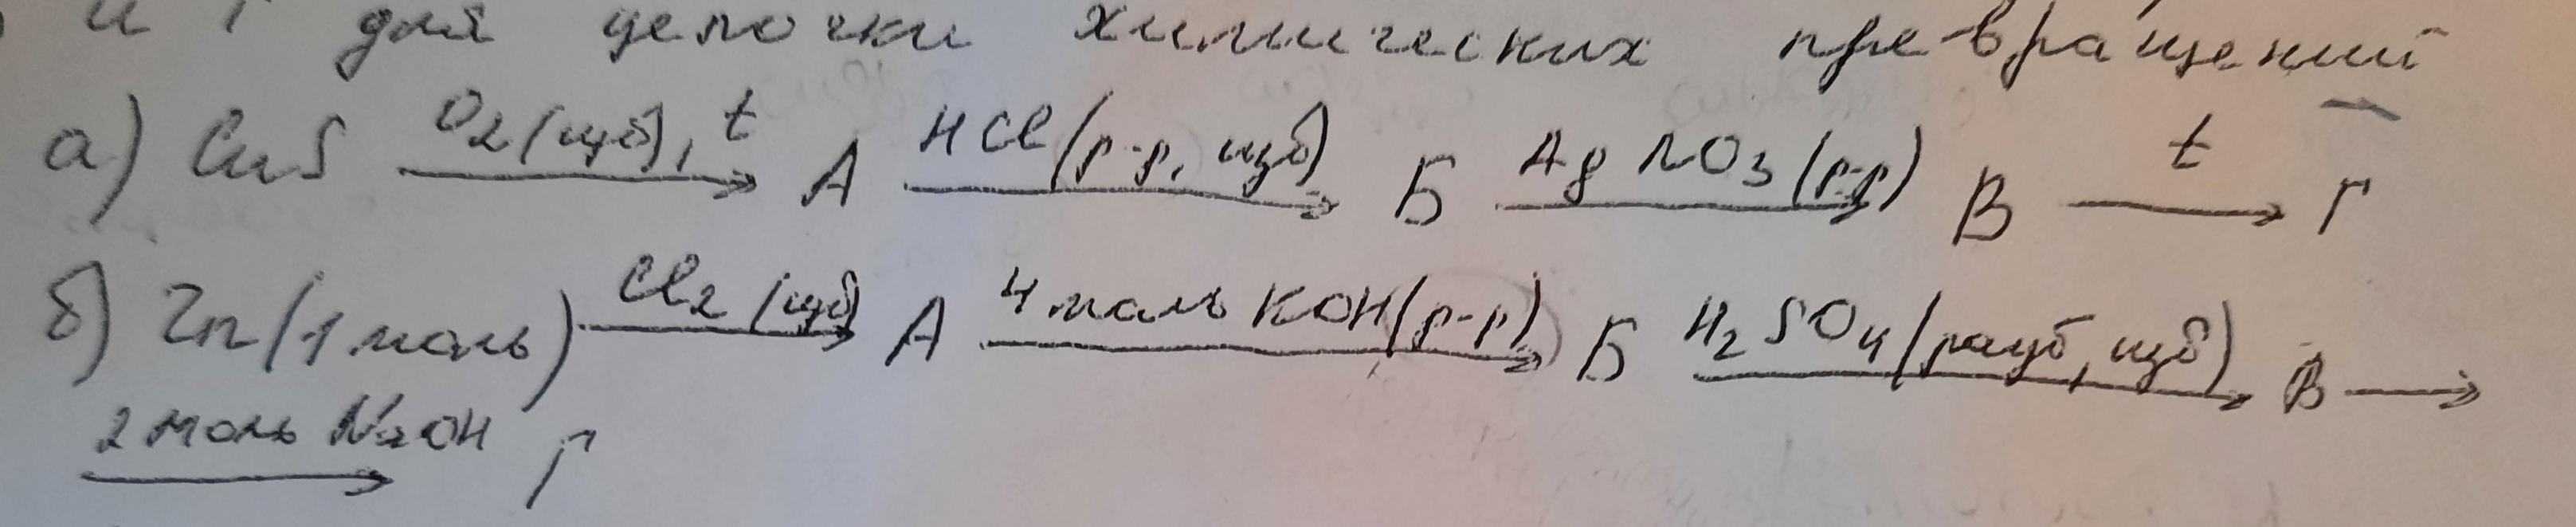 и Г для цепочки химических превращений
а) CuS O2(изб), t → А HCl(р-р, изб) → Б AgNO3(р-р) → В t → Г
б) Zn(1 моль) Cl2(изб) → А 4 моль KOH(р-р) → Б H2SO4(разб, изб) → В →
2 моль NaOH → Г